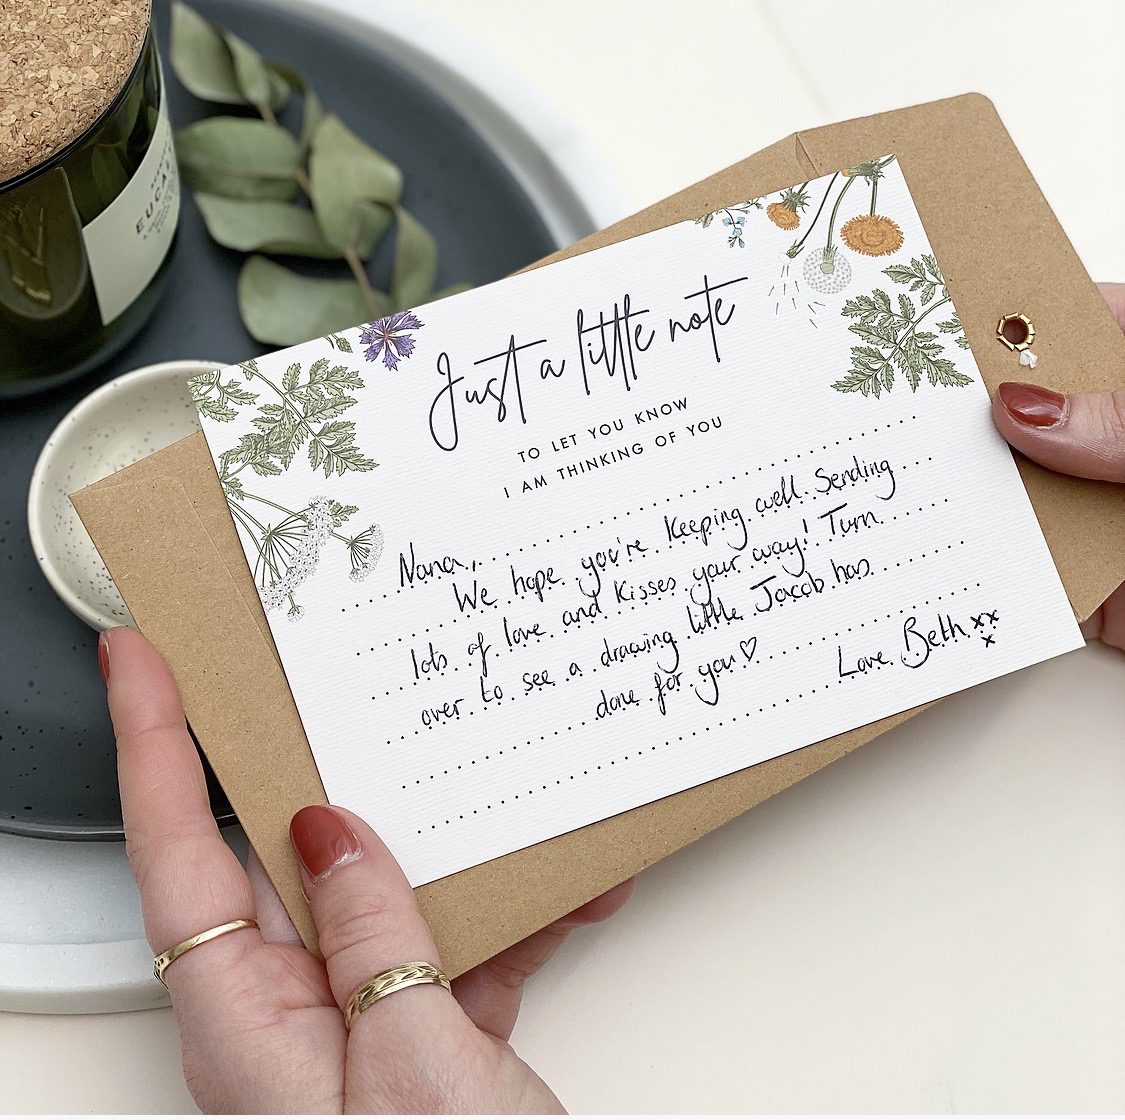 EUCA
Just a little note
TO LET YOU KNOW
I AM THINKING OF YOU
Nana,
We hope you're keeping well. Sending
lots of love and kisses your way! Turn
over to see a drawing little Jacob has
done for you♡
Love Beth xx
x